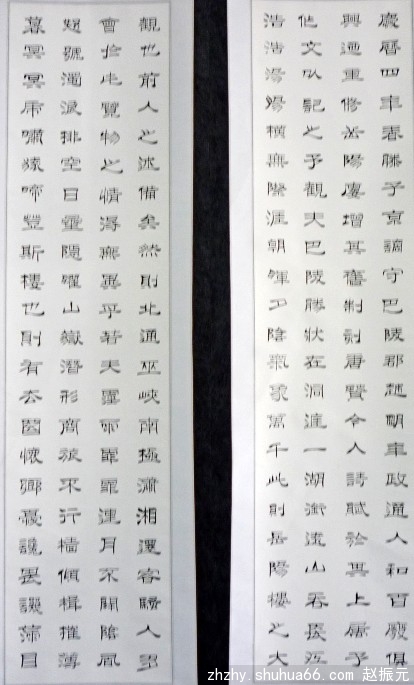 慶曆四年春滕子京謫守巴陵郡越明年政通人和百廢俱
興迺重修岳陽樓增其舊制刻唐賢今人詩賦於其上屬予
作文以記之予觀夫巴陵勝狀在洞庭一湖銜遠山吞長江
浩浩湯湯橫無際涯朝暉夕陰氣象萬千此則岳陽樓之大
觀也前人之述備矣然則北通巫峽南極瀟湘遷客騷人多
會於此覽物之情得無異乎若夫霪雨霏霏連月不開陰風
怒號濁浪排空日星隱曜山嶽潛形商旅不行檣傾楫摧薄
暮冥冥虎嘯猿啼登斯樓也則有去國懷鄉憂讒畏譏滿目
zhzhy.shuhua66.com 赵振元